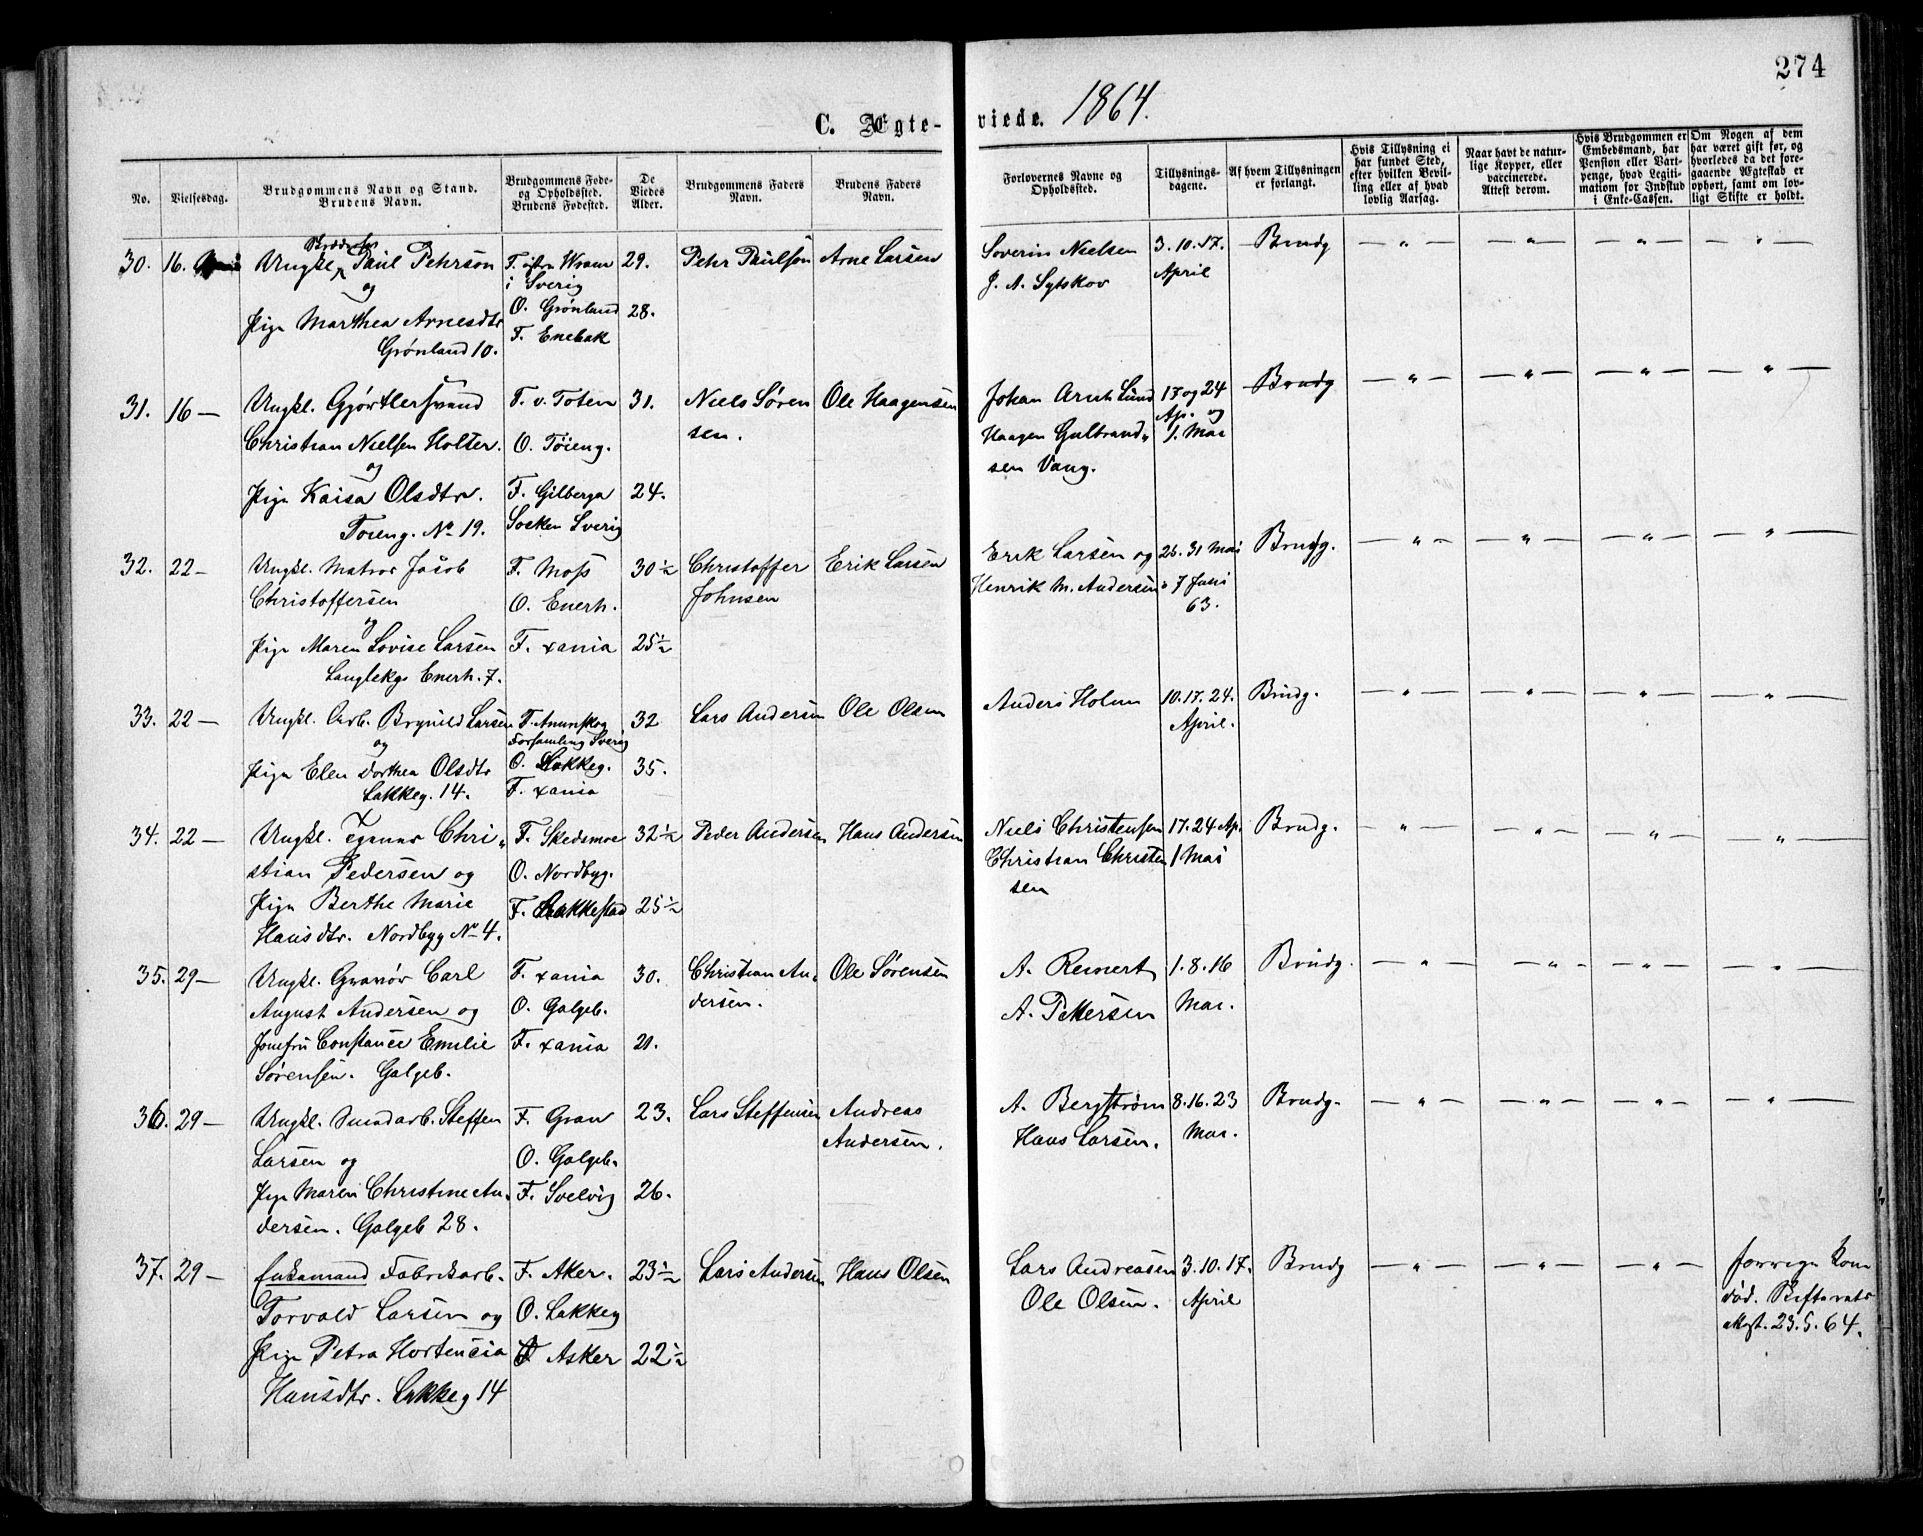 274
C. Ægte-
viede. 1864.
No.
Vielsesdag.
Brudgommens Navn og Stand.
Brudens Navn.
Brudgommens Føde-
og Opholdssted.
Brudens Fødested.
De
Viedes
Alder.
Brudgommens Faders
Navn.
Brudens Faders
Navn.
Forlovernes Navne og
Opholdssted.
Tillysnings-
dagene.
Af hvem Tillysningen
er forlangt.
Hvis Tillysning ei
har fundet Sted,
efter hvilken Bevil-
ling eller af hvad
lovlig Aarsag.
Naar havt de natur-
lige Kopper, eller
vaccinerede.
Attest derom.
Hvis Brudgommen er
Embedsmand, har
Pension eller Vart-
penge, hvad Legiti-
mation for Indskud
i Enke-Cassen.
Om Nogen af dem
har været gift før, og
hvorledes da det fore-
gaaende Ægteskab er
ophørt, samt om lov-
ligt Skifte er holdt.
30. 16.
Ungkl. Paul Pehrson
og
Pige Marthea Arnesdtr
Grønland 10.
F. östra Wram
i Sverig
O. Grønland
F. Enebak
29.
28.
Pehr Paulson
Arne Larsen
Soverin Nielsen
J. A. Sytskov
3. 10. 17.
April
Brudg
— " — — " — — " — — " —
31. 16 —
Ungkl. Gjørtlersvend
Christian Nielsen Holter.
og
Pige Kaisa Olsdtr.
Toieng. No 19.
F. v. Toten
O. Töieng.
F. Gilberga
Socken Sverig
31.
24.
Niels Søren
sen.
Ole Haagensen
Johan Arnt Lund
Haagen Gulbrand„
sen Vang.
17 og 24
Ap. og
1. Mai
Brudg
— " — — " — — " — — " —
32. 22 —
Ungkl. Matros Jacob
Christoffersen
og
Pige Maren Lovise Larsen
Langlekg Enerh. 7.
F. Moss
O. Enerh.
F. xania
30½
25½
Christoffer
Johnsen
Erik Larsen
Erik Larsen og
Henrik M. Andersen
25. 31 Mai
7 Juni
63.
Brudg.
— " — — " — — " — — " —
33. 22 —
Ungkl. Arb. Brynild Larsen
og
Pige Elen Dorthea Olsdtr
Lakkeg. 14.
F. Animskog
Forsamling Sverig
O. Lakkeg.
F. xania
32
35.
Lars Andersen
Ole Olsen
Anders Holm
10. 17. 24.
April.
Brudg.
— " — — " — — " — — " —
34. 22 —
Ungkl. Tømmr Chri„
stian Pedersen og
Pige Berthe Marie
Hansdtr. Nordbyg No 4.
F. Skedsmoe
O. Nordbyg.
F. Rakkestad
32½
25½
Peder Andersen
Hans Andersen
Niels Christensen
Christian Christen
sen
17. 24 Ap.
1 Mai
Brudg.
— " — — " — — " — — " —
35. 29 —
Ungkl. Gravör Carl
August Andersen og
Jomfru Constance Emilie
Sørensen. Galgeb.
F. xania
O. Galgeb.
F. xania
30.
21.
Christian An„
dersen.
Ole Sørensen
A. Reinert
A. Pettersen
1. 8. 16
Mai.
Brudg.
— " — — " — — " — — " —
36. 29 —
Ungkl. Smedarb. Steffen
Larsen og
Pige Maren Christine An„
dersen. Galgeb 28.
F. Gran
O. Galgeb.
F. Svelvig
23.
26.
Lars Steffensen
Andreas
Andersen.
A. Bergstrøm
Hans Larsen.
8. 16. 23
Mai.
Brudg.
— " — — " — — " — — " —
37. 29 —
Enkemand Fabrikarb.
Torvald Larsen og
Pige Petra Hortencia
Hansdtr. Lakkeg 14
F. Aker.
O. Lakkeg
F Asker
23½
22½
Lars Andersen
Hans Olsen
Lars Andreasen
Ole Olsen.
3. 10. 17.
April
Brudg
— " — — " — — " —
forrige Kone
død. Skifterets
Attest. 23. 5. 64.